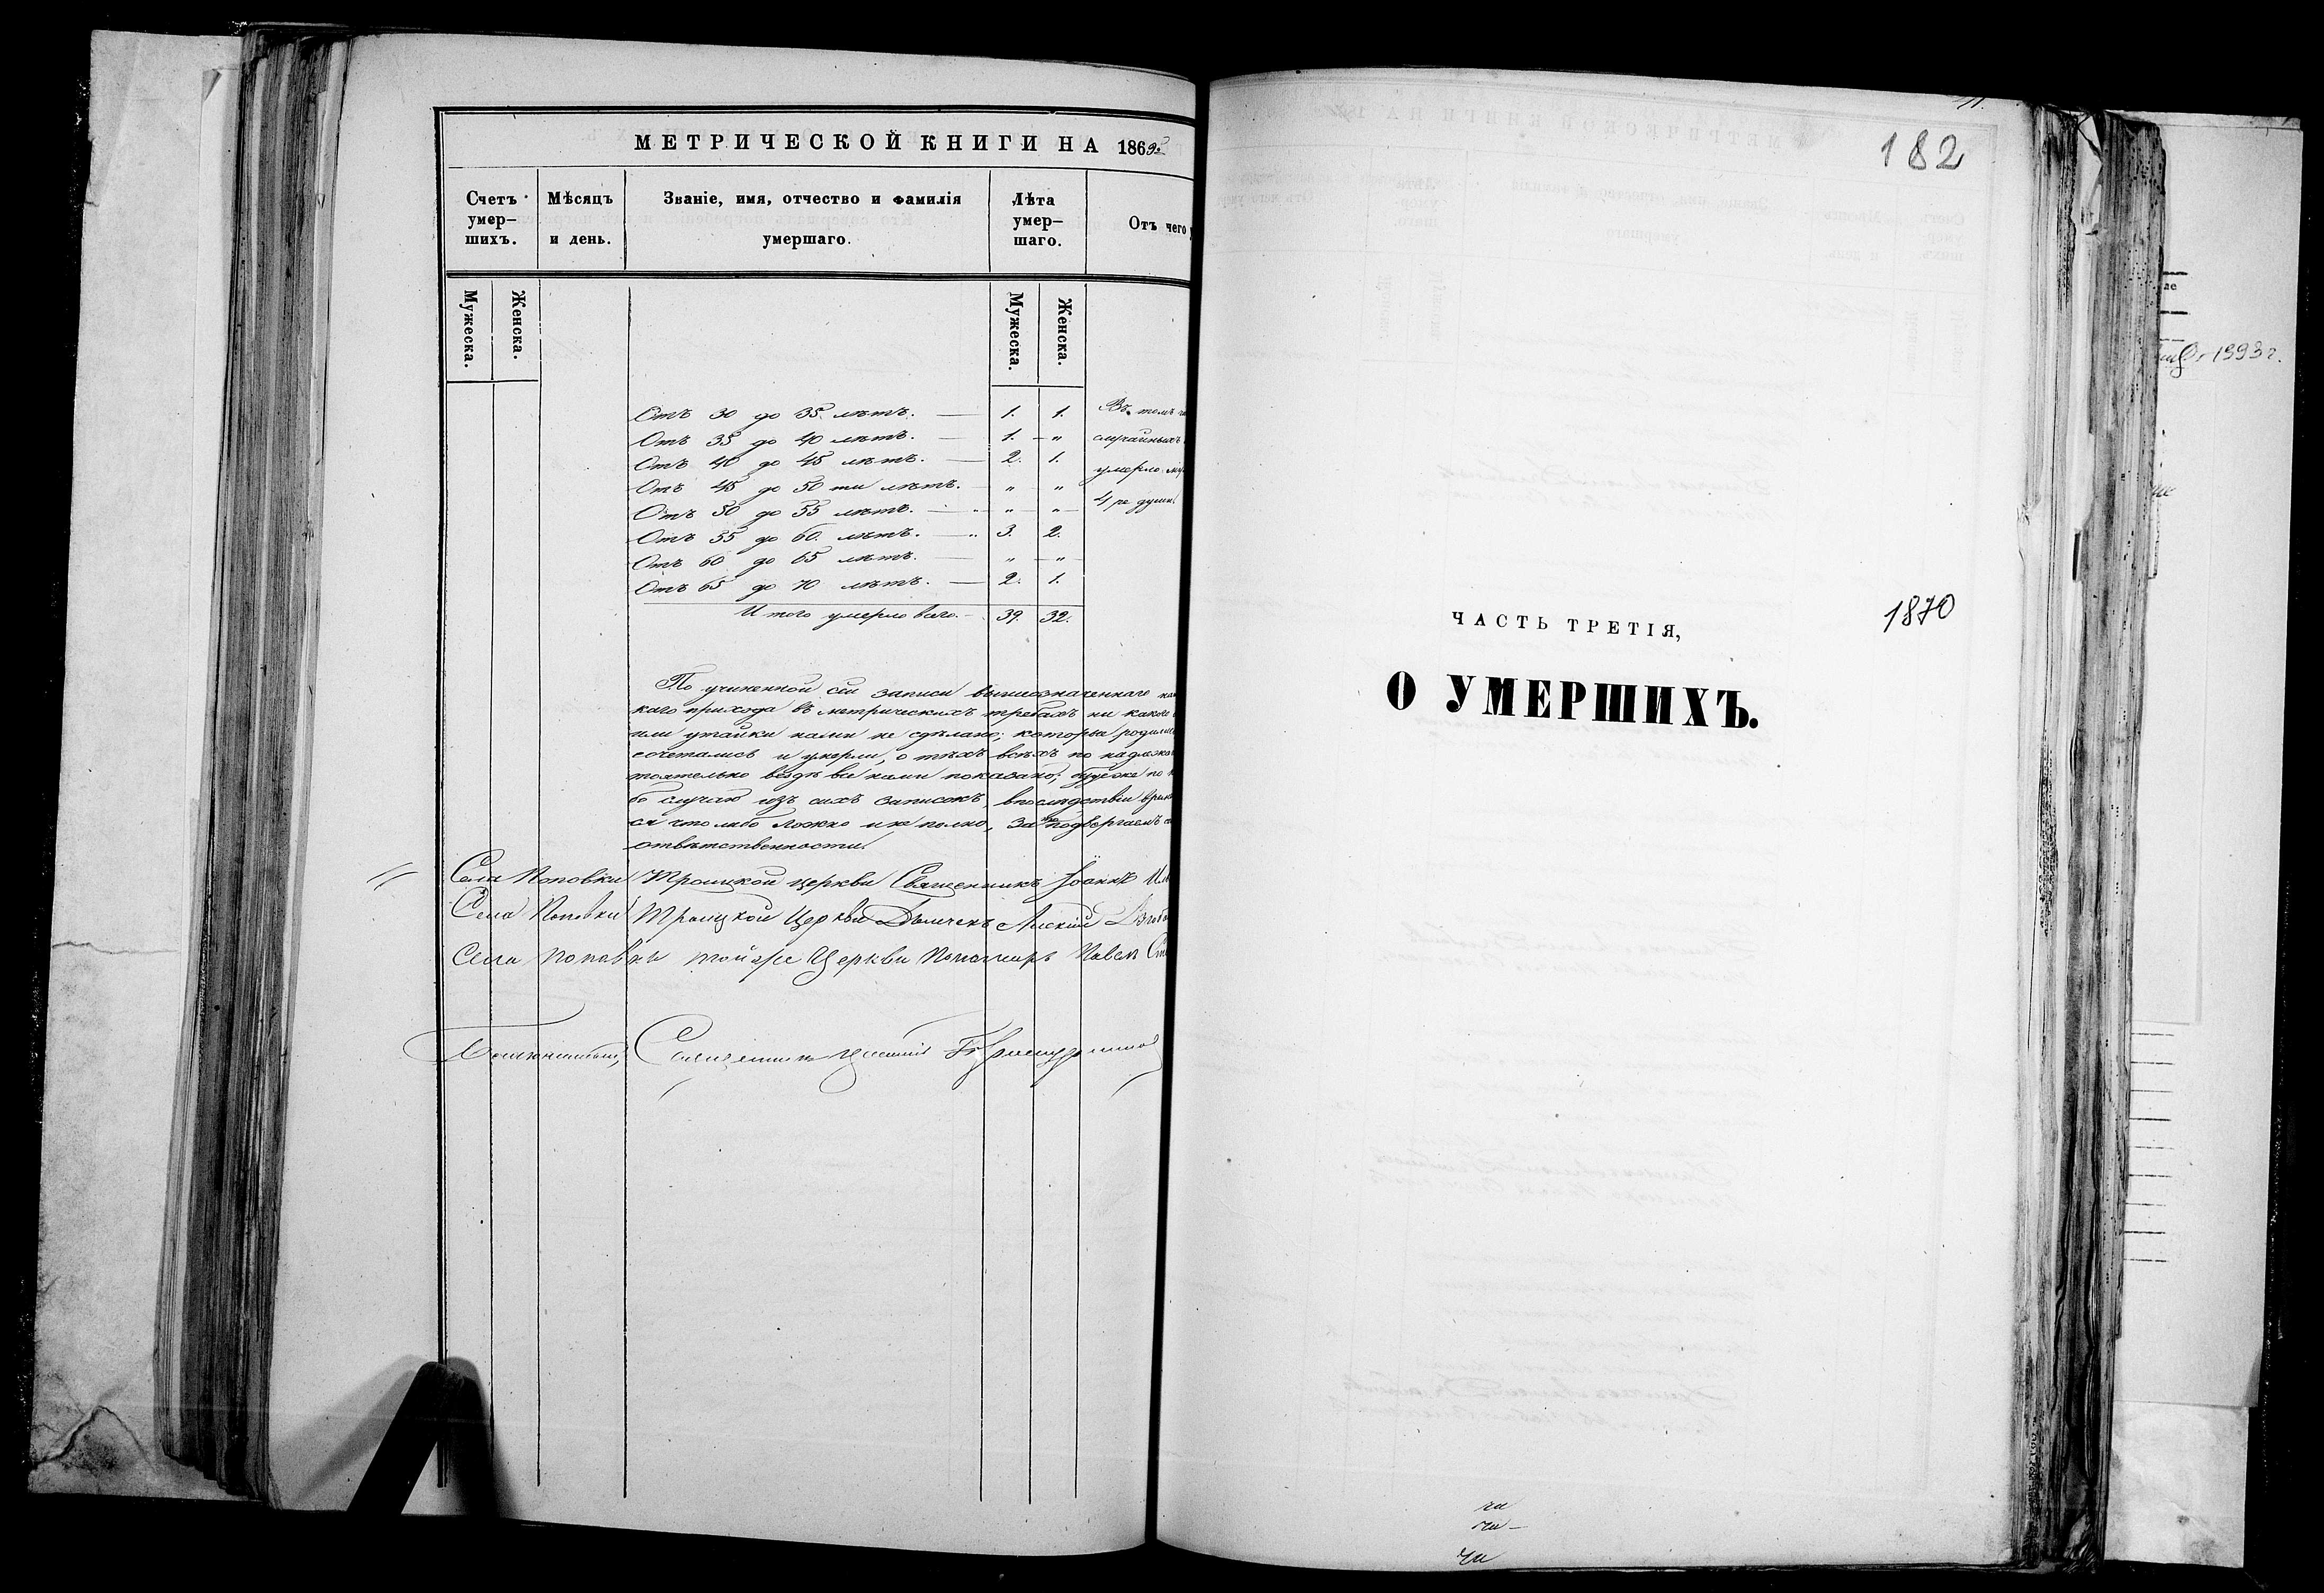 МЕТРИЧЕСКОЙ КНИГИ НА 1869
Счетъ умер– шихъ.
Мѣсяцъ и день.
Званіе, имя, отчество и фамилія умершаго.
Лѣта умер– шаго.
Отъ чего
Мужеска.
Женска.
Мужеска.
Женска.
Отъ 30 до 35 лѣтъ. — 1. 1.
Отъ 35 до 40 лѣтъ. — 1. — „
Отъ 40 до 45 лѣтъ. — 2. 1.
Отъ 45 до 50 ти лѣтъ. „ „
Отъ 50 до 55 лѣтъ. — „ „
Отъ 55 до 60. лѣтъ. — 3. 2.
Отъ 60 до 65 лѣтъ. — „ „
Отъ 65 до 70 лѣтъ. — 2. 1.
Итого умерло всего. — 39. 32.
Въ томъ
случайныхъ
умерло
4 ре души
По учиненной сей записи вышеозначеннаго
каго прихода въ метрическихъ требахъ ни какое
или утайки нами не сдѣлано; которые родились
сочетались и умерли, о тѣхъ всѣхъ по надлежа
тоятельно вездѣ все нами показано; буде же по
бо случаю изъ сихъ записокъ, впослѣдствіи
ся что либо ложно и не полно, за то подвергаемъ
отвѣтственности.
Села Поповки Троицкой церкви Священникъ Іоаннъ
Села Поповки Троицкой Церкви Дьячекъ Алексій
Села Поповки той же Церкви Пономарь Павел
Благочинный, Священникъ
182
1870
ЧАСТЬ ТРЕТІЯ,
О УМЕРШИХЪ.
1993 г.